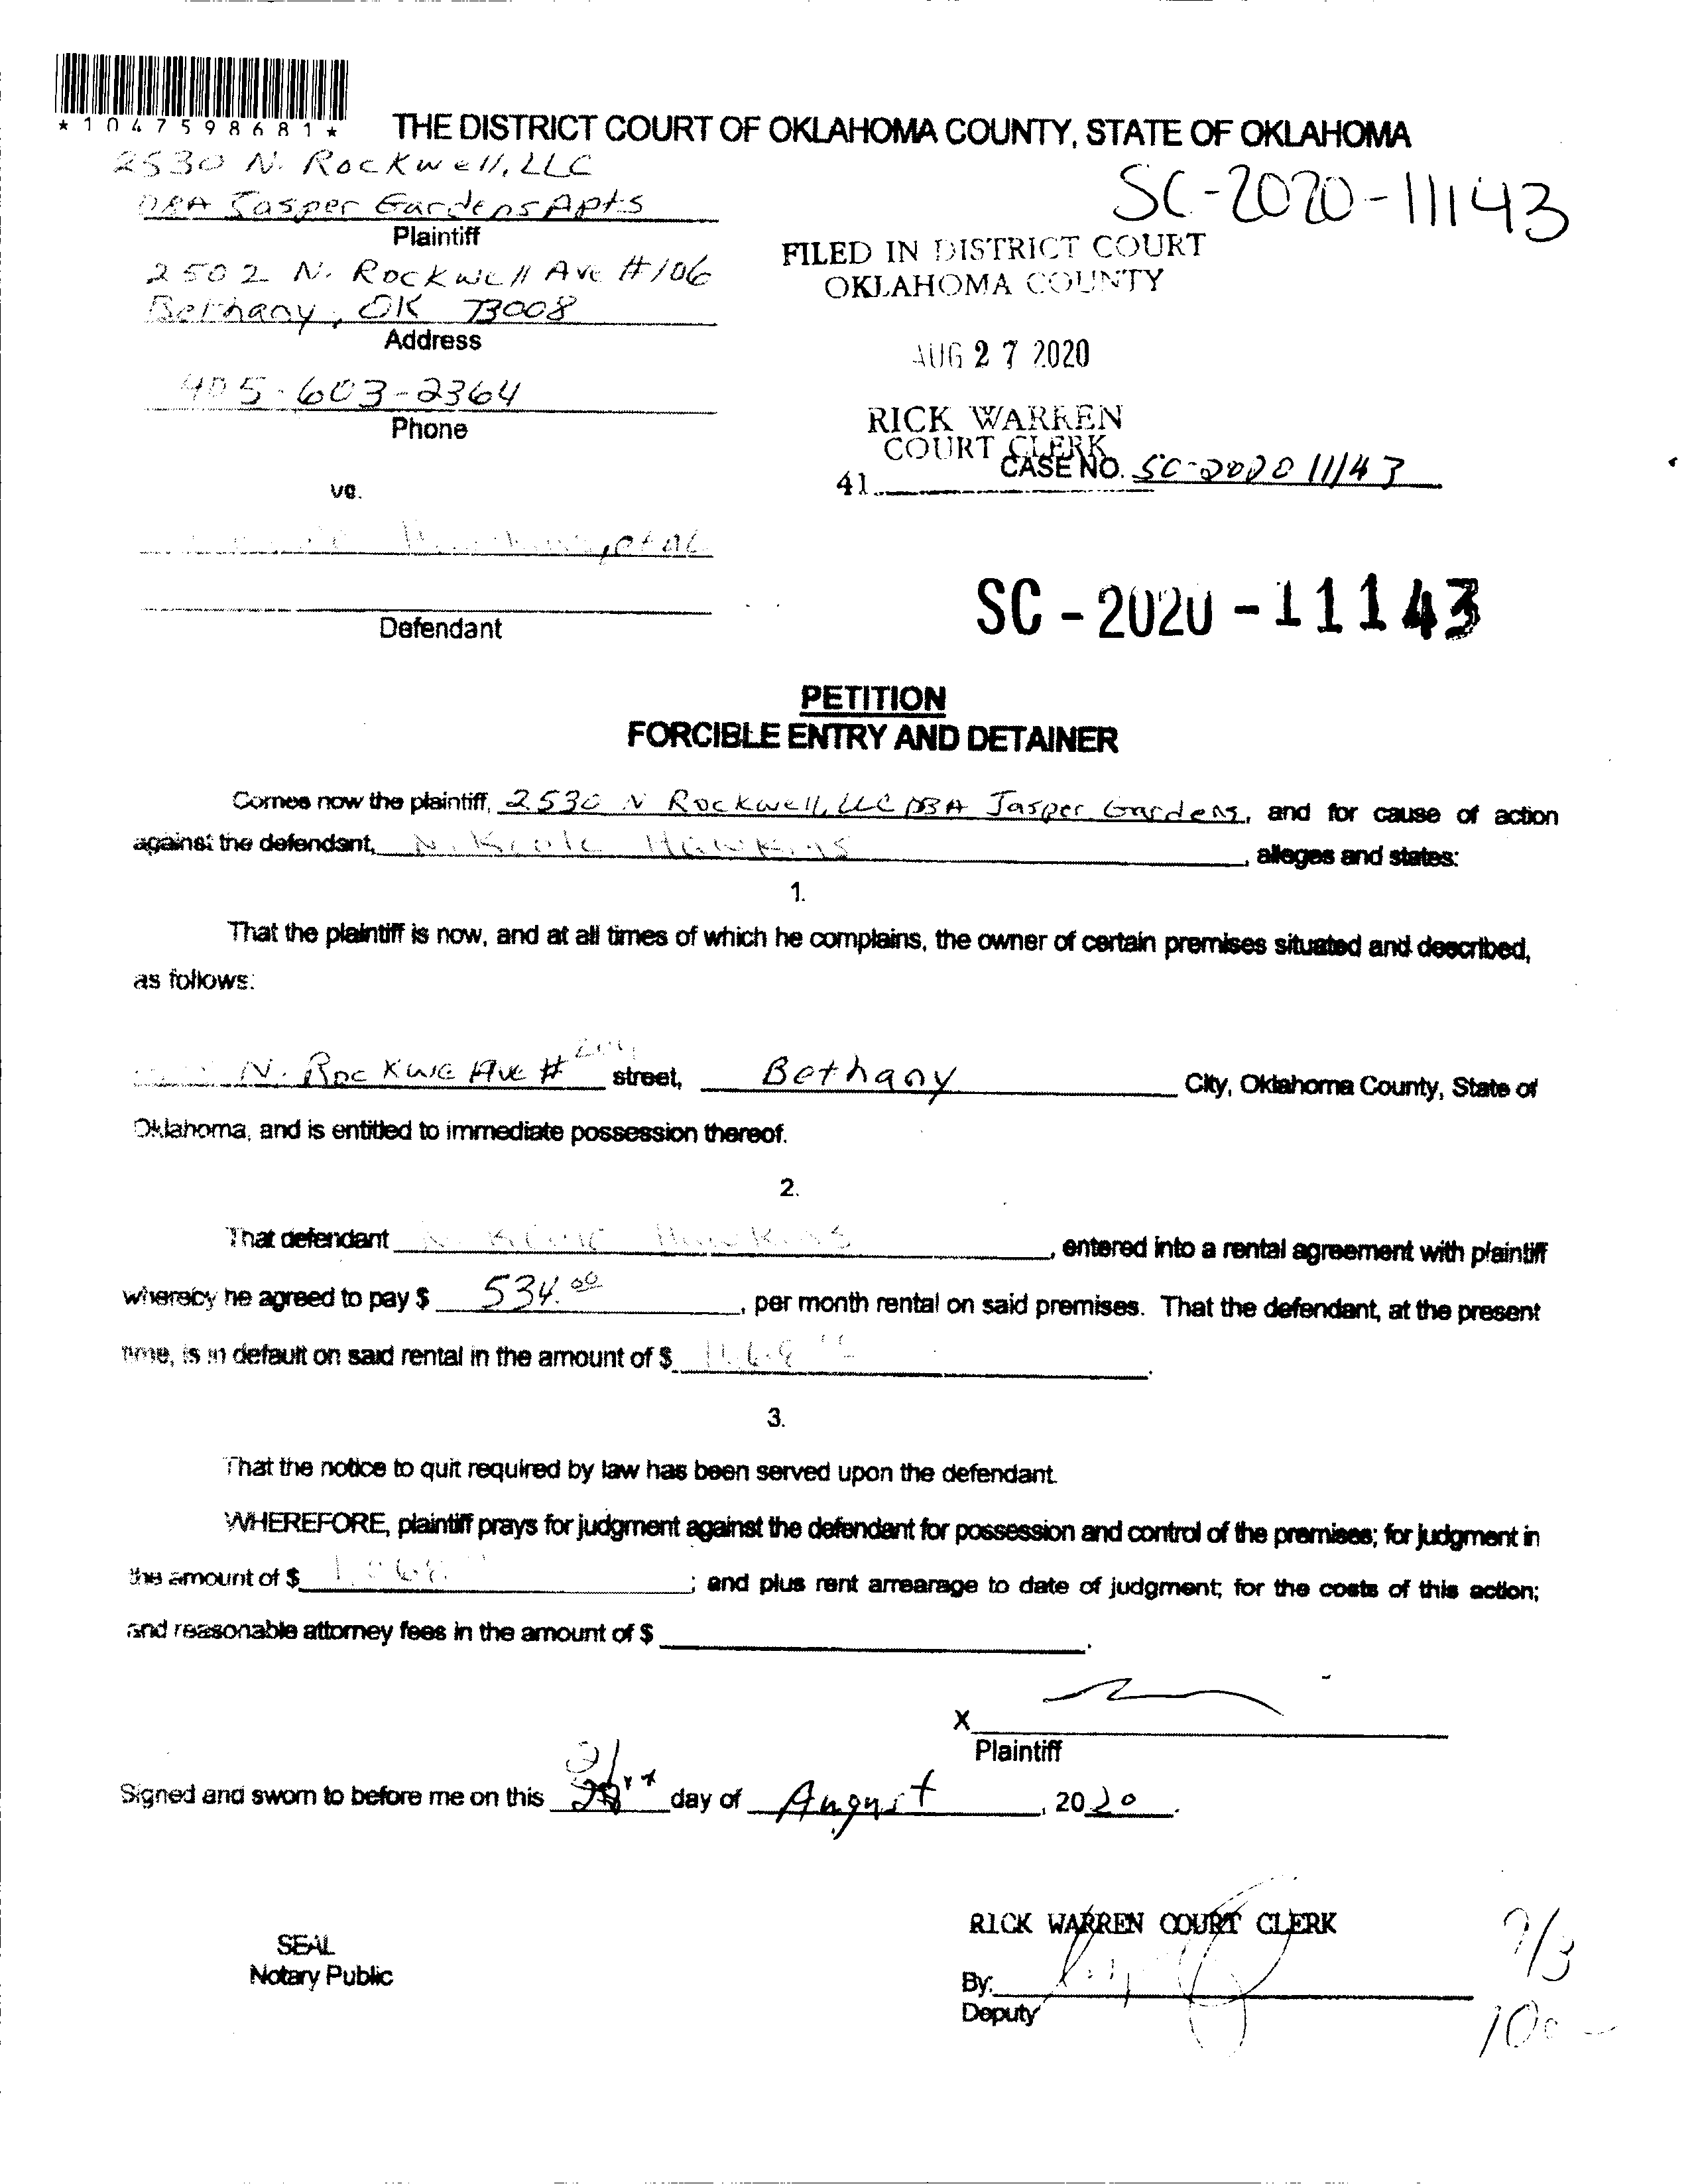 *1047598681*
THE DISTRICT COURT OF OKLAHOMA COUNTY, STATE OF OKLAHOMA
2530 N. Rockwell, LLC
DBA Jasper Gardens Apts
Plaintiff
SC-2020-11143
FILED IN DISTRICT COURT
OKLAHOMA COUNTY
2502 N. Rockwell Ave #106
Bethany, OK 73008
Address
AUG 27 2020
405-603-2364
Phone
RICK WARREN
COURT CLERK
CASE NO. SC-2020 11143
41
vs.
, et al
Defendant
SC-2020-11143
PETITION
FORCIBLE ENTRY AND DETAINER
Comes now the plaintiff, 2530 N Rockwell, LLC DBA Jasper Gardens, and for cause of action
against the defendant, Hawkins, alleges and states:
1.
That the plaintiff is now, and at all times of which he complains, the owner of certain premises situated and described,
as follows:
N. Rockwe Ave # street, Bethany City, Oklahoma County, State of
Oklahoma, and is entitled to immediate possession thereof.
2.
That defendant Hawkins, entered into a rental agreement with plaintiff
whereby he agreed to pay $ 534.00, per month rental on said premises. That the defendant, at the present
time, is in default on said rental in the amount of $ .
3.
That the notice to quit required by law has been served upon the defendant.
WHEREFORE, plaintiff prays for judgment against the defendant for possession and control of the premises; for judgment in
the amount of $ ; and plus rent arrearage to date of judgment; for the costs of this action;
and reasonable attorney fees in the amount of $ .
X
Plaintiff
Signed and sworn to before me on this day of August, 2020.
RICK WARREN COURT CLERK
SEAL
Notary Public
By:
Deputy
9/3
100-